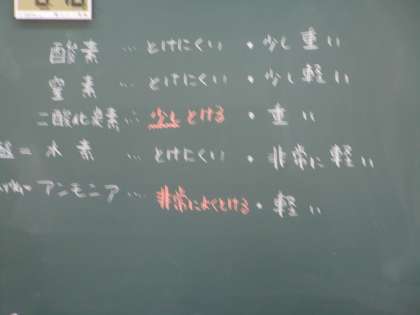 酸素 … とけにくい ・ 少し重い
窒素 … とけにくい ・ 少し軽い
二酸化炭素 … 少しとける ・ 重い
水素 … とけにくい ・ 非常に軽い
アンモニア … 非常によくとける ・ 軽い